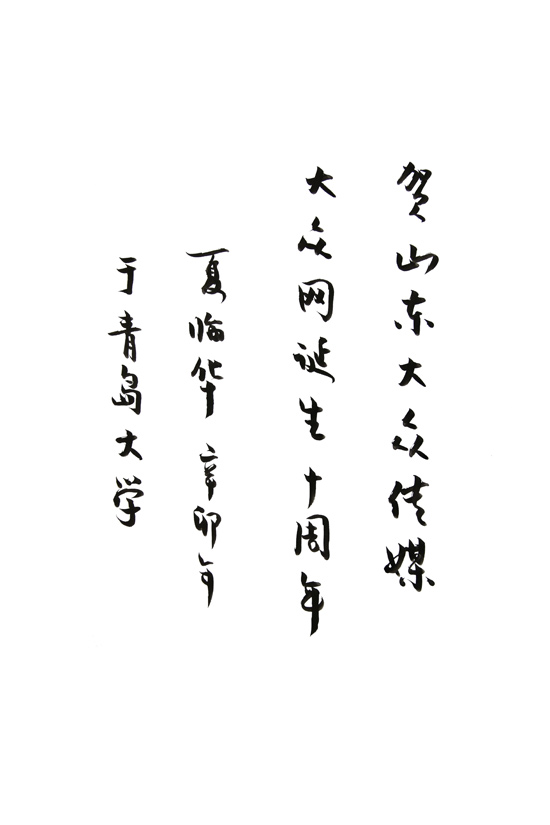 贺山东大众传媒
大众网诞生十周年
夏临华 辛卯年
于青岛大学